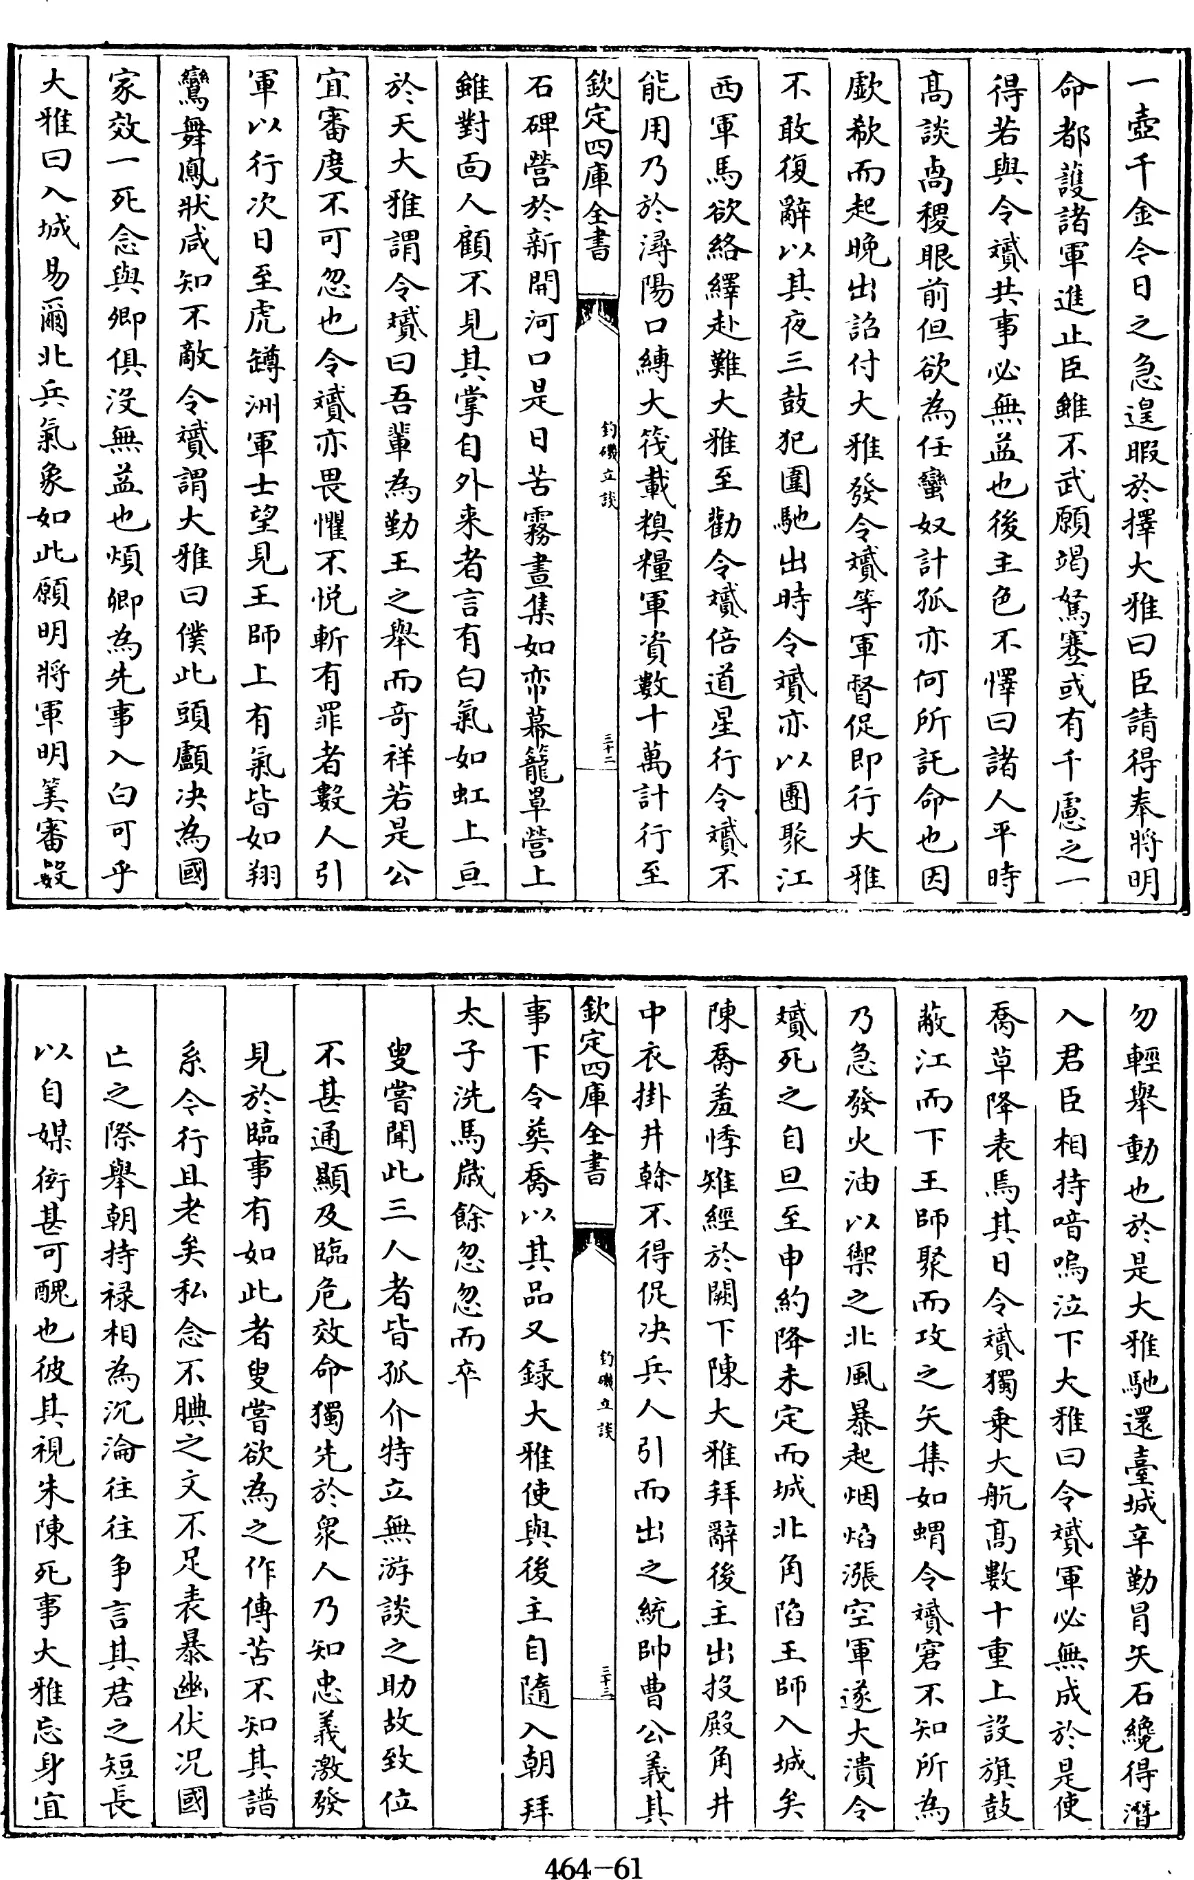 一壺千金今日之急遑暇於擇大雅曰臣請得奉將明
命都護諸軍進止臣雖不武願竭駑蹇或有千慮之一
得若與令贇共事必無益也後主色不懌曰諸人平時
高談卨稷眼前但欲為任蠻奴計孤亦何所託命也因
歔欷而起晚出詔付大雅發令贇等軍督促即行大雅
不敢復辭以其夜三鼓犯圍馳出時令贇亦以團聚江
西軍馬欲絡繹赴難大雅至勸令贇倍道星行令贇不
能用乃於潯陽口縛大筏載糗糧軍資數十萬計行至
欽定四庫全書
釣磯立談
三十二
石碑營於新開河口是日苦霧晝集如帟幕籠罩營上
雖對面人顧不見其掌自外來者言有白氣如虹上亘
於天大雅謂令贇曰吾輩為勤王之舉而竒祥若是公
宜審度不可忽也令贇亦畏懼不悦斬有罪者數人引
軍以行次日至虎罇洲軍士望見王師上有氣皆如翔
鸞舞鳳狀咸知不敵令贇謂大雅曰僕此頭顱决為國
家效一死念與卿俱沒無益也煩卿為先事入白可乎
大雅曰入城易爾北兵氣象如此願明將軍明筭審斆
勿輕舉動也於是大雅馳還臺城辛勤冒矢石纔得潛
入君臣相持喑嗚泣下大雅曰令贇軍必無成於是使
喬草降表焉其日令贇獨乗大航高數十重上設旗鼓
蔽江而下王師聚而攻之矢集如蝟令贇窘不知所為
乃急發火油以禦之北風暴起烟焰漲空軍遂大潰令
贇死之自旦至申約降未定而城北角陷王師入城矣
陳喬羞悸雉經於闕下陳大雅拜辭後主出投殿角井
中衣掛井榦不得促决兵人引而出之統帥曹公義其
欽定四庫全書
釣磯立談
三十三
事下令葬喬以其品又録大雅使與後主自隨入朝拜
太子洗馬歲餘忽忽而卒
叟嘗聞此三人者皆孤介特立無游談之助故致位
不甚通顯及臨危效命獨先於衆人乃知忠義激發
見於臨事有如此者叟嘗欲為之作傳苦不知其譜
系令行且老矣私念不腆之文不足表暴幽伏况國
亡之際舉朝持禄相為沉淪往往争言其君之短長
以自媒衒甚可醜也彼其視朱陳死事大雅忘身宜
464-61